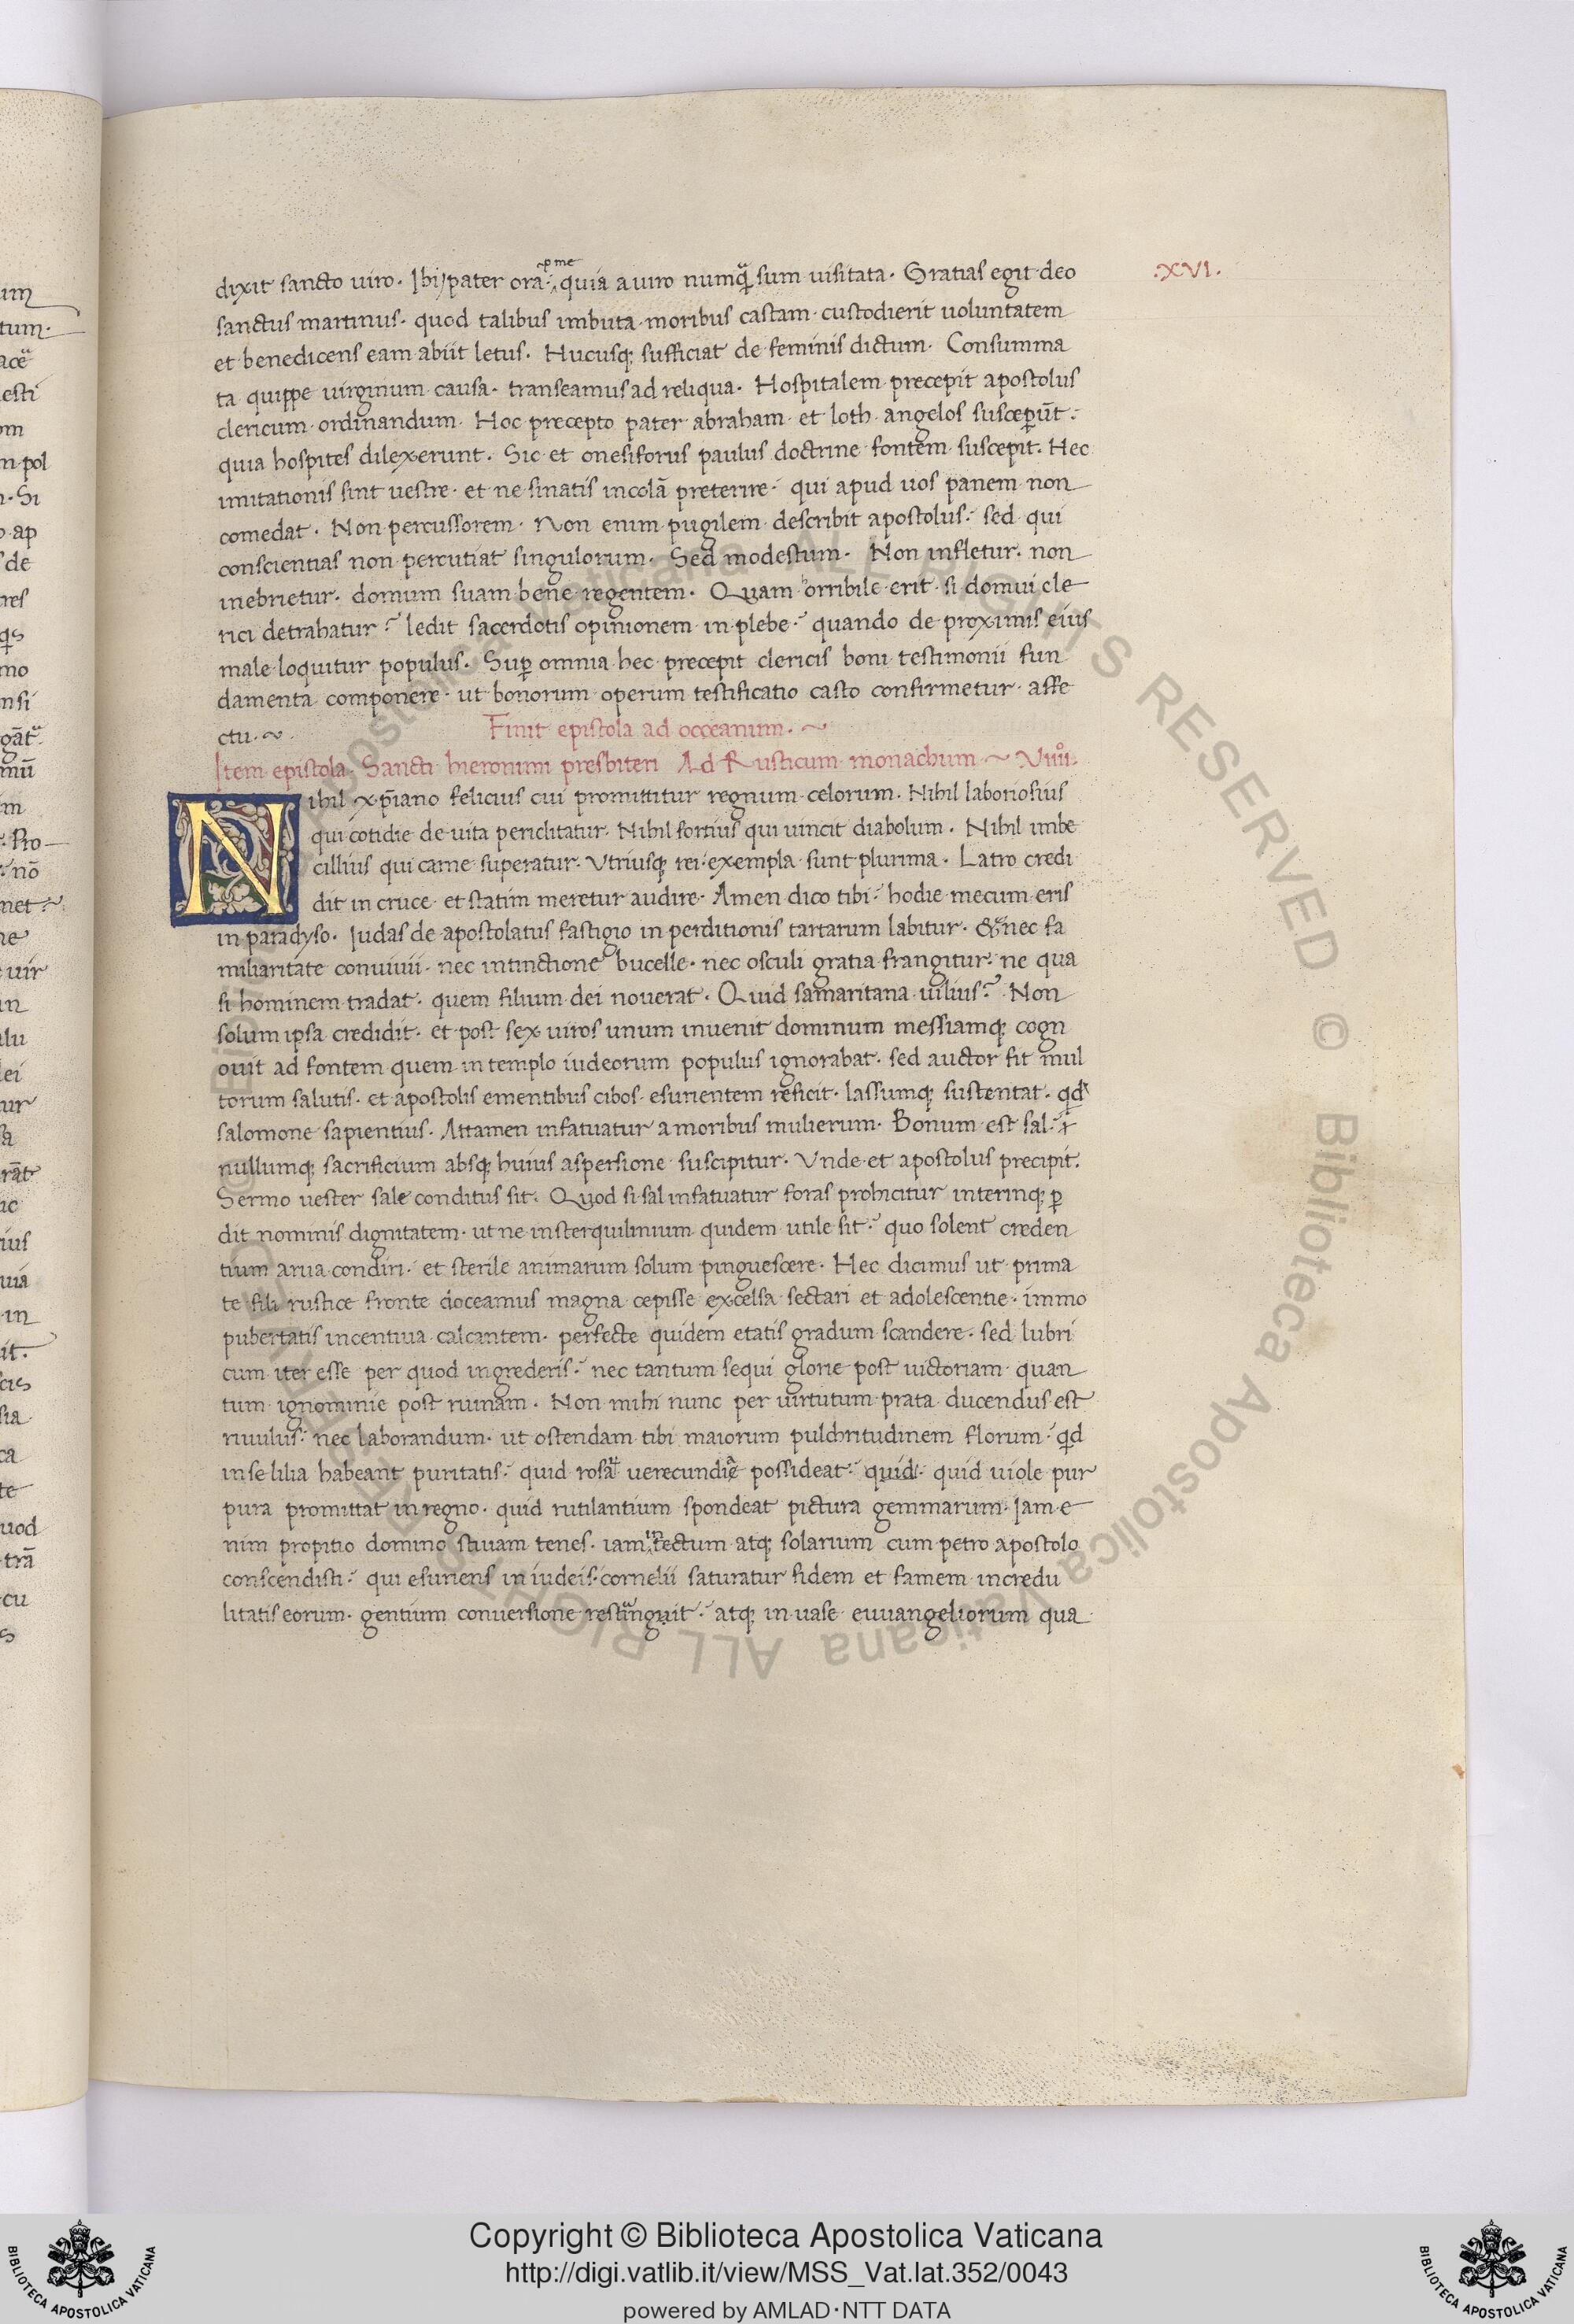 dixit sancto uiro. Ibi pater ora: p me quia a uiro numqͣ sum uisitata. Gratias egit deo
.XVI.
sanctus martinus. quod talibus imbuta moribus castam custodierit uoluntatem
et benedicens eam abiit letus. Hucusq; sufficiat de feminis dictum. Consumma
ta quippe uirginum causa. transeamus ad reliqua. Hospitalem precepit apostolus
clericum ordinandum. Hoc precepto pater abraham et loth angelos susceper̄t:
quia hospites dilexerunt. Sic et onesiforus paulus doctrine fontem suscepit. Hec
imitationis sint uestre. et ne sinatis incolā preterire. qui apud uos panem non
comedat. Non percussorem. Non enim pugilem describit apostolus: sed qui
conscientias non percutiat singulorum. Sed modestum. Non infletur. non
inebrietur. domum suam bene regentem. Quam horribile erit si domui cle
rici detrahatur? ledit sacerdotis opinionem in plebe: quando de proximis eius
male loquitur populus. Sup̄ omnia hec precepit clericis boni testimonii fun
damenta componere. ut bonorum operum testificatio casto confirmetur affe
ctu. ~ Finit epistola ad occeanum. ~
Item epistola Sancti hieronimi presbiteri Ad Rusticum monachum ~ Viiiiº.
Nihil xp̄iano felicius cui promittitur regnum celorum. Nihil laboriosius
qui cotidie de uita periclitatur. Nihil fortius qui uincit diabolum. Nihil imbe
cillius qui carne superatur. Vtriusq; rei exempla sunt plurima. Latro credi
dit in cruce et statim meretur audire. Amen dico tibi: hodie mecum eris
in paradyso. Iudas de apostolatus fastigio in perditionis tartarum labitur. & nec fa
miliaritate conuiuii. nec intinctione bucelle. nec osculi gratia frangitur: ne qua
si hominem tradat. quem filium dei nouerat. Quid samaritana uilius? Non
solum ipsa credidit. et post sex uiros unum inuenit dominum messiamq; cogn
ouit ad fontem quem in templo iudeorum populus ignorabat. sed auctor fit mul
torum salutis. et apostolis ementibus cibos esurientem reficit. lassumq; sustentat. qd
salomone sapientius. Attamen infatuatur a moribus mulierum. Bonum est sal:
nullumq; sacrificium absq; huius aspersione suscipitur. Vnde et apostolus precipit.
Sermo uester sale conditus sit. Quod si sal infatuatur foras prohicitur interimq; p̄
dit nominis dignitatem. ut ne in sterquilinium quidem utile sit: quo solent creden
tium arua condiri. et sterile animarum solum pinguescere. Hec dicimus ut prima
te fili rustice fronte doceamus magna cepisse excelsa sectari et adolescentie. immo
pubertatis incentiua calcantem. perfecte quidem etatis gradum scandere. sed lubri
cum iter esse per quod ingrederis: nec tantum sequi glorie post uictoriam quan
tum ignominie post ruinam. Non mihi nunc per uirtutum prata ducendus est
riuulus: nec laborandum. ut ostendam tibi maiorum pulchritudinem florum: qd
in se lilia habeant puritatis: quid rosa uerecundie possideat: quid quid uiole pur
pura promittat in regno. quid rutilantium spondeat pictura gemmarum. Iam e
nim propitio domino stiuam tenes. iam in tectum atq; solarium cum petro apostolo
conscendisti: qui esuriens in iudeis cornelii saturatur fidem et famem incredu
litatis eorum. gentium conuersione restinguit: atq; in uase euuangeliorum qua
Copyright © Biblioteca Apostolica Vaticana
http://digi.vatlib.it/view/MSS_Vat.lat.352/0043
powered by AMLAD·NTT DATA
BIBLIOTECA APOSTOLICA VATICANA
BIBLIOTECA APOSTOLICA VATICANA
© Biblioteca Apostolica Vaticana ALL RIGHTS RESERVED © Biblioteca Apostolica Vaticana ALL RIGHTS RESERVED